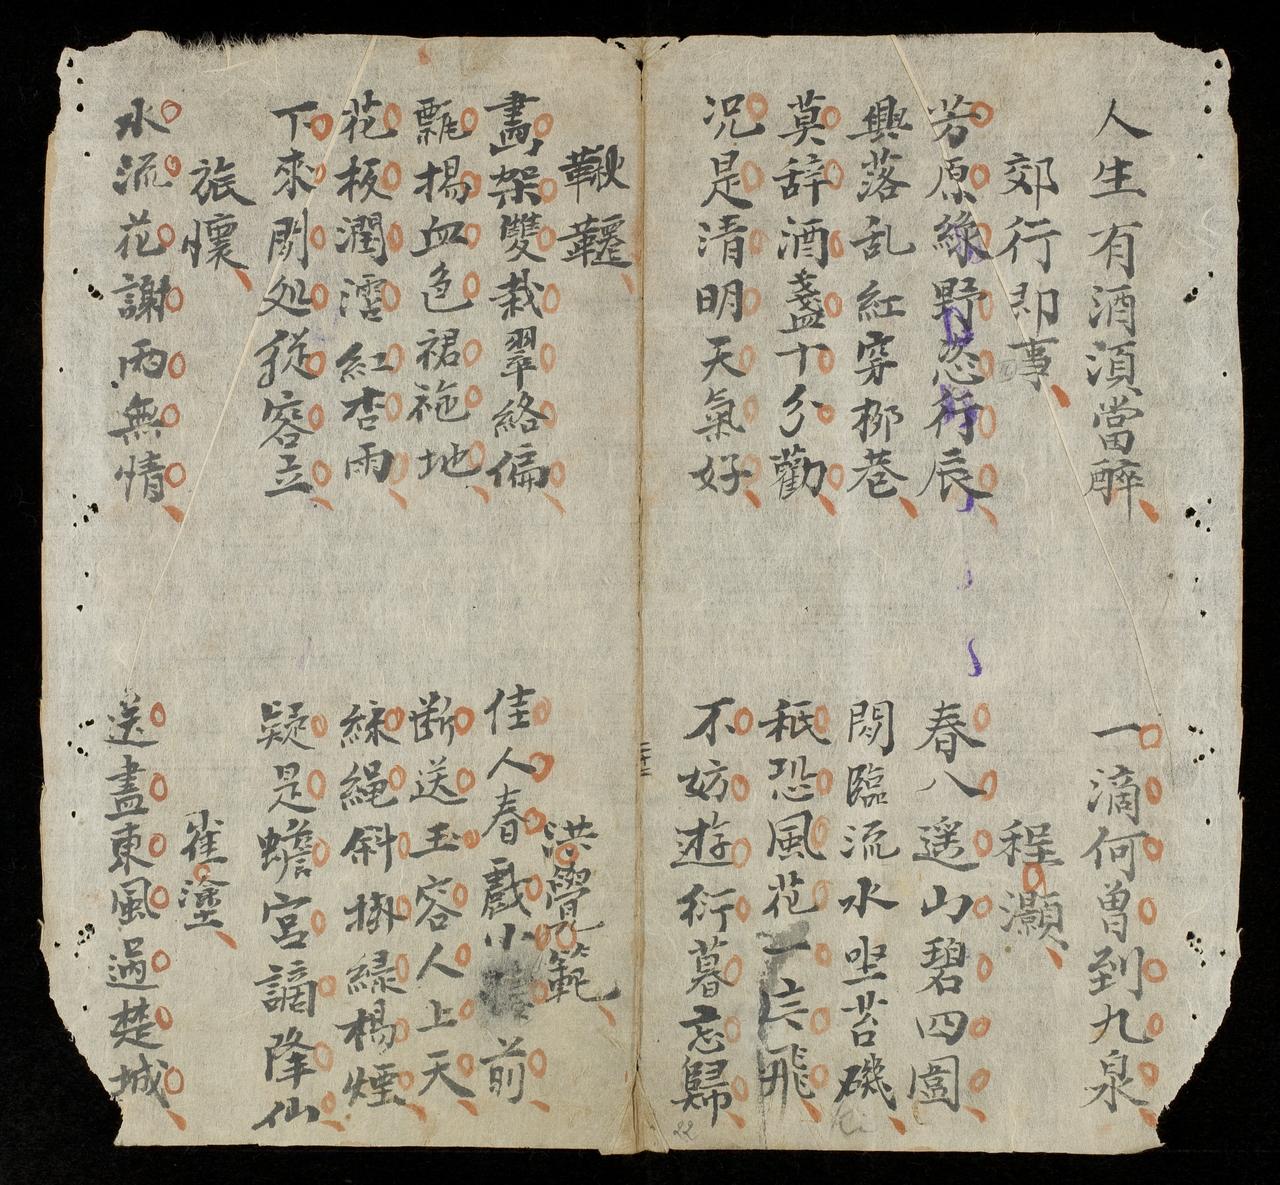 人生有酒須當醉
一滴何曾到九泉
郊行即事
程灝
芳原綠野恣行辰
春入遥山碧四圍
興落乱紅穿栁巷
閑臨流水坐苔磯
莫辞酒盞十分勸
秖恐風花一片飛
况是清明天氣好
不妨遊衍暮忘歸
鞦韆
洪覺範
畵架雙栽翠絡偏
佳人春戲小 前
飄揚血色裙拖地
断送玉容人上天
花板潤沾紅杏雨
綵繩斜掛緑楊煙
下來閑处從容立
疑是蟾宮謫降仙
旅懷
崔塗
水流花謝両無情
送盡東風過楚城
二十二
22